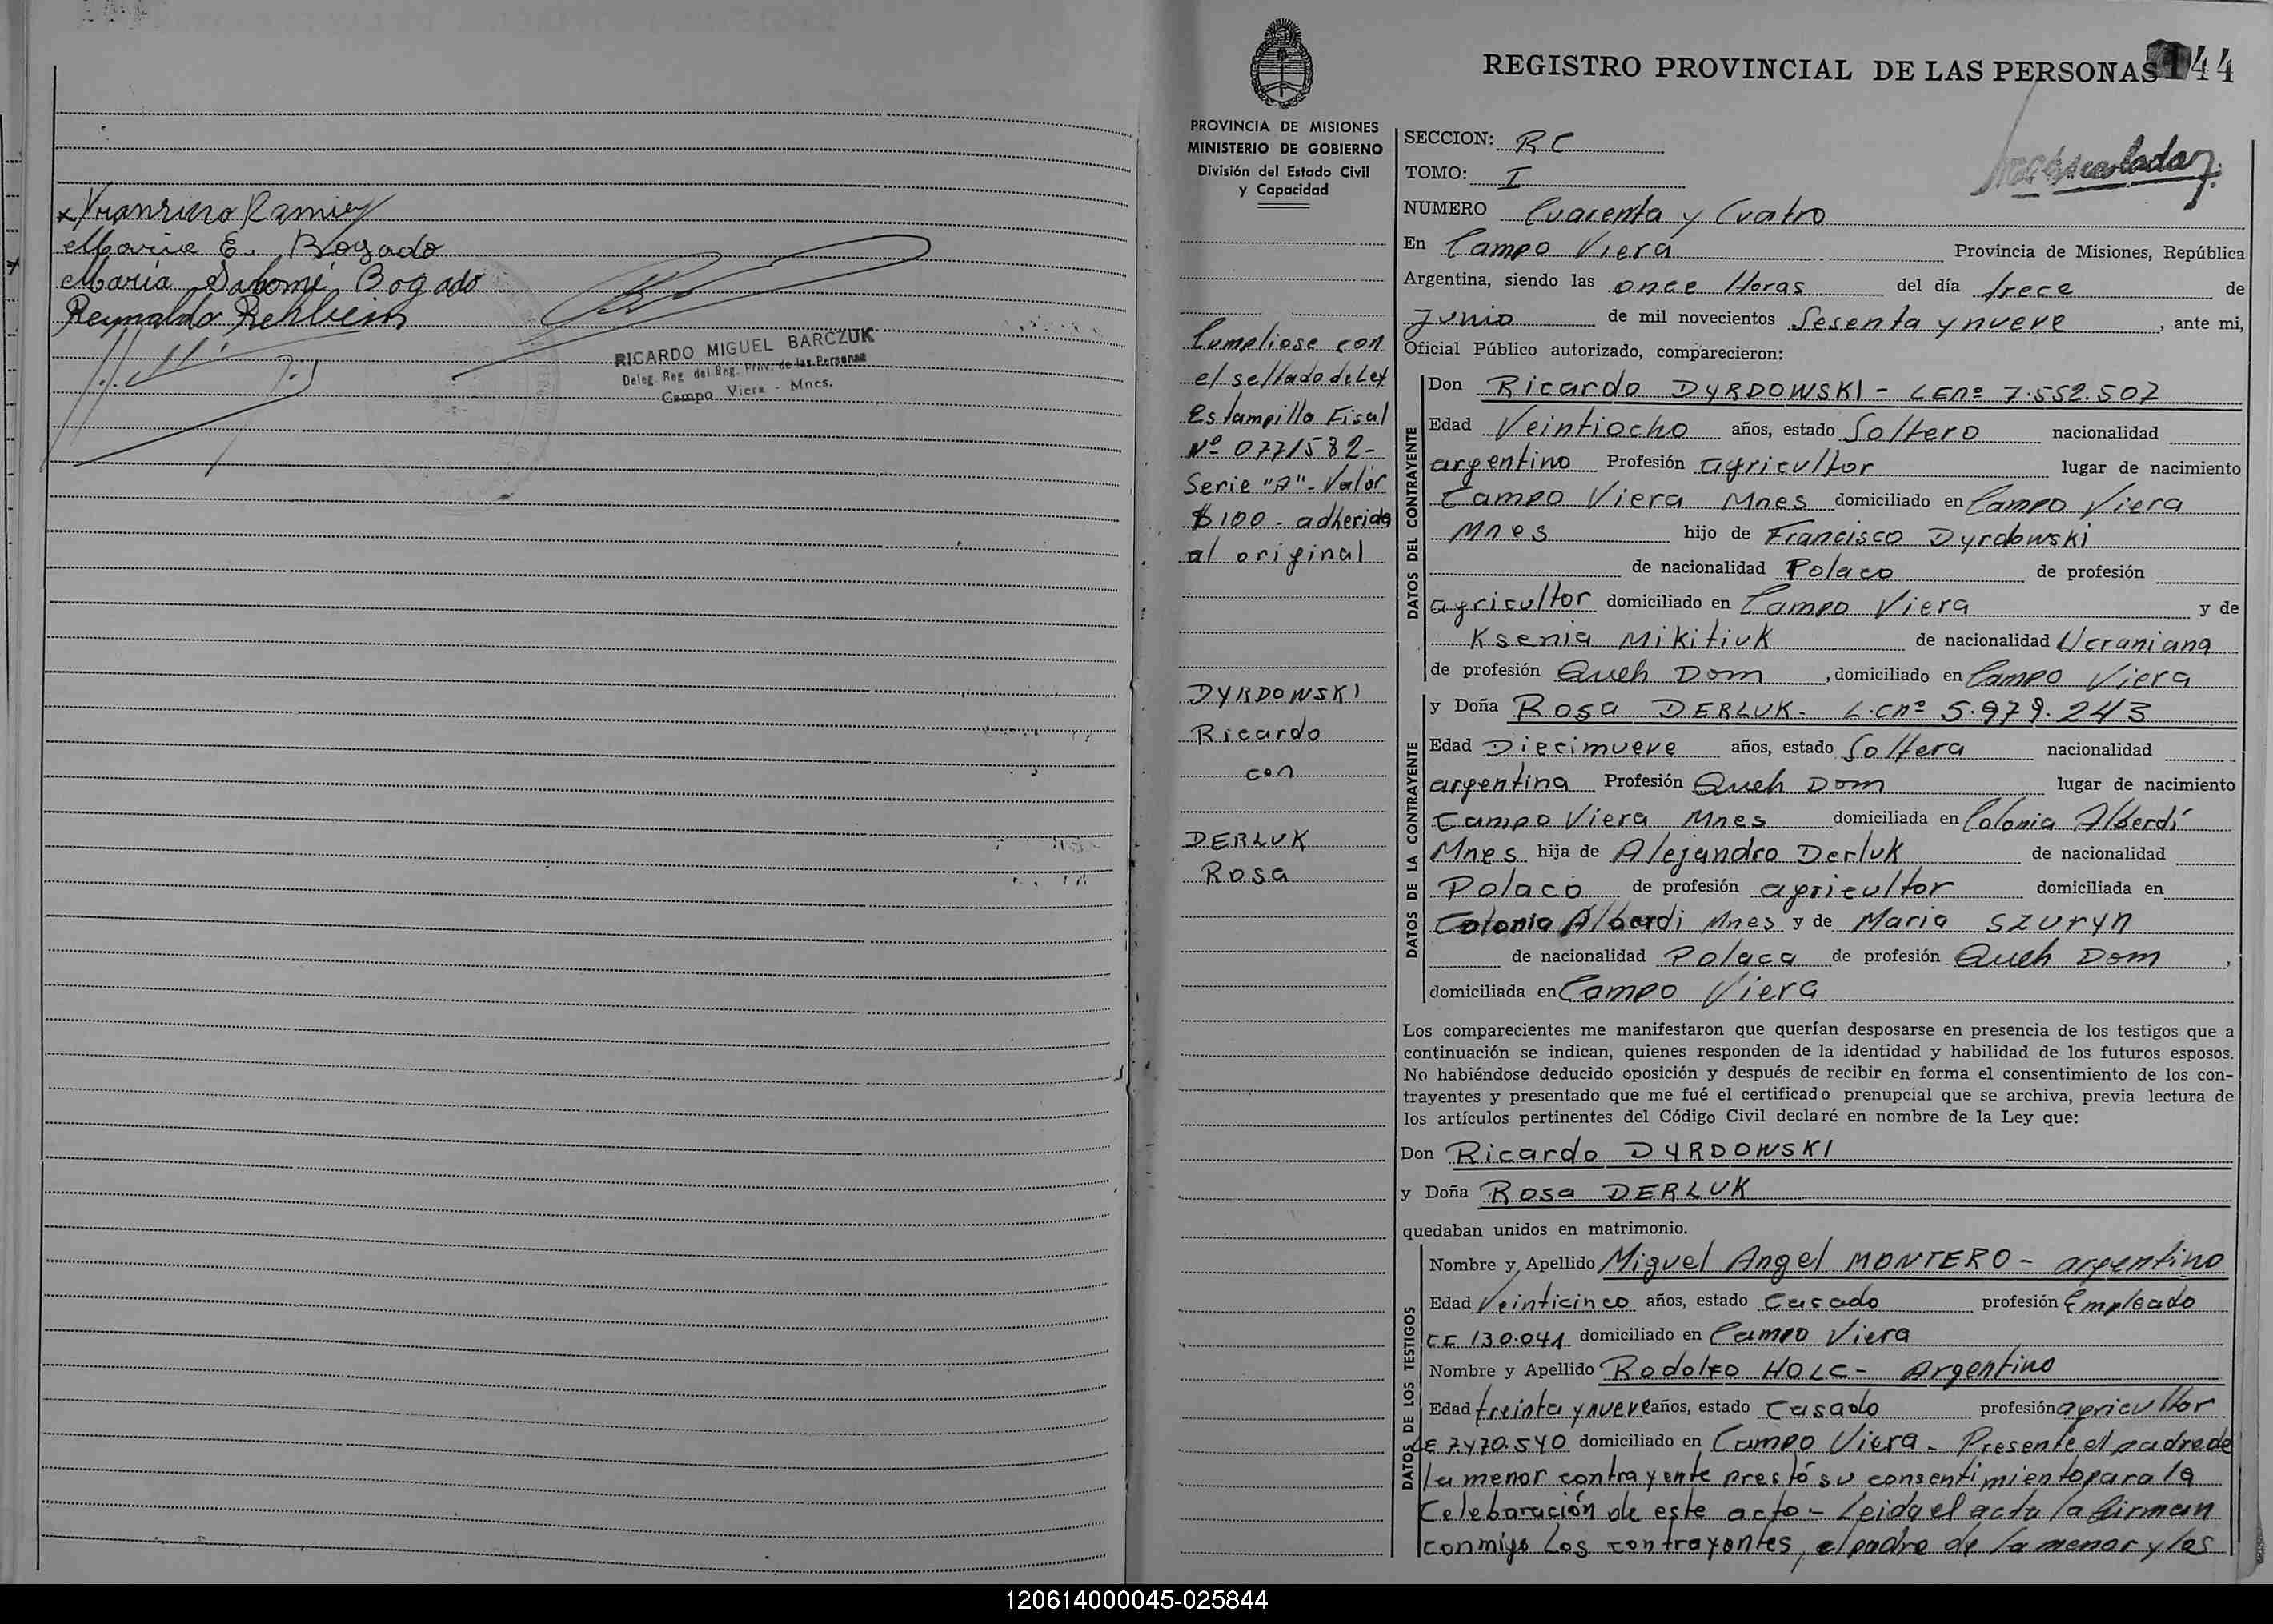 Ramirez
E. Bogado
María Salomé Bogado
Reynaldo Rehbein
RICARDO MIGUEL BARCZUK
Deleg. Reg. del Reg. Prov. de las Personas
Campo Viera - Mnes.
REGISTRO PROVINCIAL DE LAS PERSONAS 144
PROVINCIA DE MISIONES
MINISTERIO DE GOBIERNO
División del Estado Civil
y Capacidad
Cumpliose con
el sellado de Ley
Estampilla Fisal
Nº 0771582-
Serie "A"- Valor
$100- adherida
al original
DYRDOWSKI
Ricardo
con
DERLUK
Rosa
SECCION: RC
TOMO: I
NUMERO Cuarenta y Cuatro
En Campo Viera Provincia de Misiones, República
Argentina, siendo las once Horas del día trece de
Junio de mil novecientos Sesenta y nueve, ante mi,
Oficial Público autorizado, comparecieron:
DATOS DEL CONTRAYENTE
Don Ricardo DYRDOWSKI - LEnº 7.552.507
Edad Veintiocho años, estado Soltero nacionalidad
argentino Profesión agricultor lugar de nacimiento
Campo Viera Mnes domiciliado en Campo Viera
Mnes hijo de Francisco Dyrdowski
de nacionalidad Polaco de profesión
agricultor domiciliado en Campo Viera y de
Ksenia Mikitiuk de nacionalidad Ucraniana
de profesión Queh Dom, domiciliado en Campo Viera
DATOS DE LA CONTRAYENTE
y Doña Rosa DERLUK- L.cnº 5.979.243
Edad Diecimueve años, estado Soltera nacionalidad
argentina Profesión Queh Dom lugar de nacimiento
Campo Viera Mnes domiciliada en Colonia Alberdí
Mnes hija de Alejandro Derluk de nacionalidad
Polaco de profesión agricultor domiciliada en
Colonia Alberdi Mnes y de Maria SZURYN
de nacionalidad Polaca de profesión Queh Dom,
domiciliada en Campo Viera
Los comparecientes me manifestaron que querían desposarse en presencia de los testigos que a
continuación se indican, quienes responden de la identidad y habilidad de los futuros esposos.
No habiéndose deducido oposición y después de recibir en forma el consentimiento de los con-
trayentes y presentado que me fué el certificado prenupcial que se archiva, previa lectura de
los artículos pertinentes del Código Civil declaré en nombre de la Ley que:
Don Ricardo DYRDOWSKI
y Doña Rosa DERLUK
quedaban unidos en matrimonio.
DATOS DE LOS TESTIGOS
Nombre y Apellido Miguel Angel MONTERO - argentino
Edad Veinticinco años, estado Casado profesión Empleado
CI 130.041 domiciliado en Campo Viera
Nombre y Apellido Rodolfo HOLC - Argentino
Edad treinta y nueve años, estado Casado profesión agricultor
LE 7.470.540 domiciliado en Campo Viera - Presente el padre de
la menor contrayente prestó su consentimiento para la
Celebaración de este acto - Leida el acta la firman
conmigo Los contrayentes, el padre de la menor y los
120614000045-025844